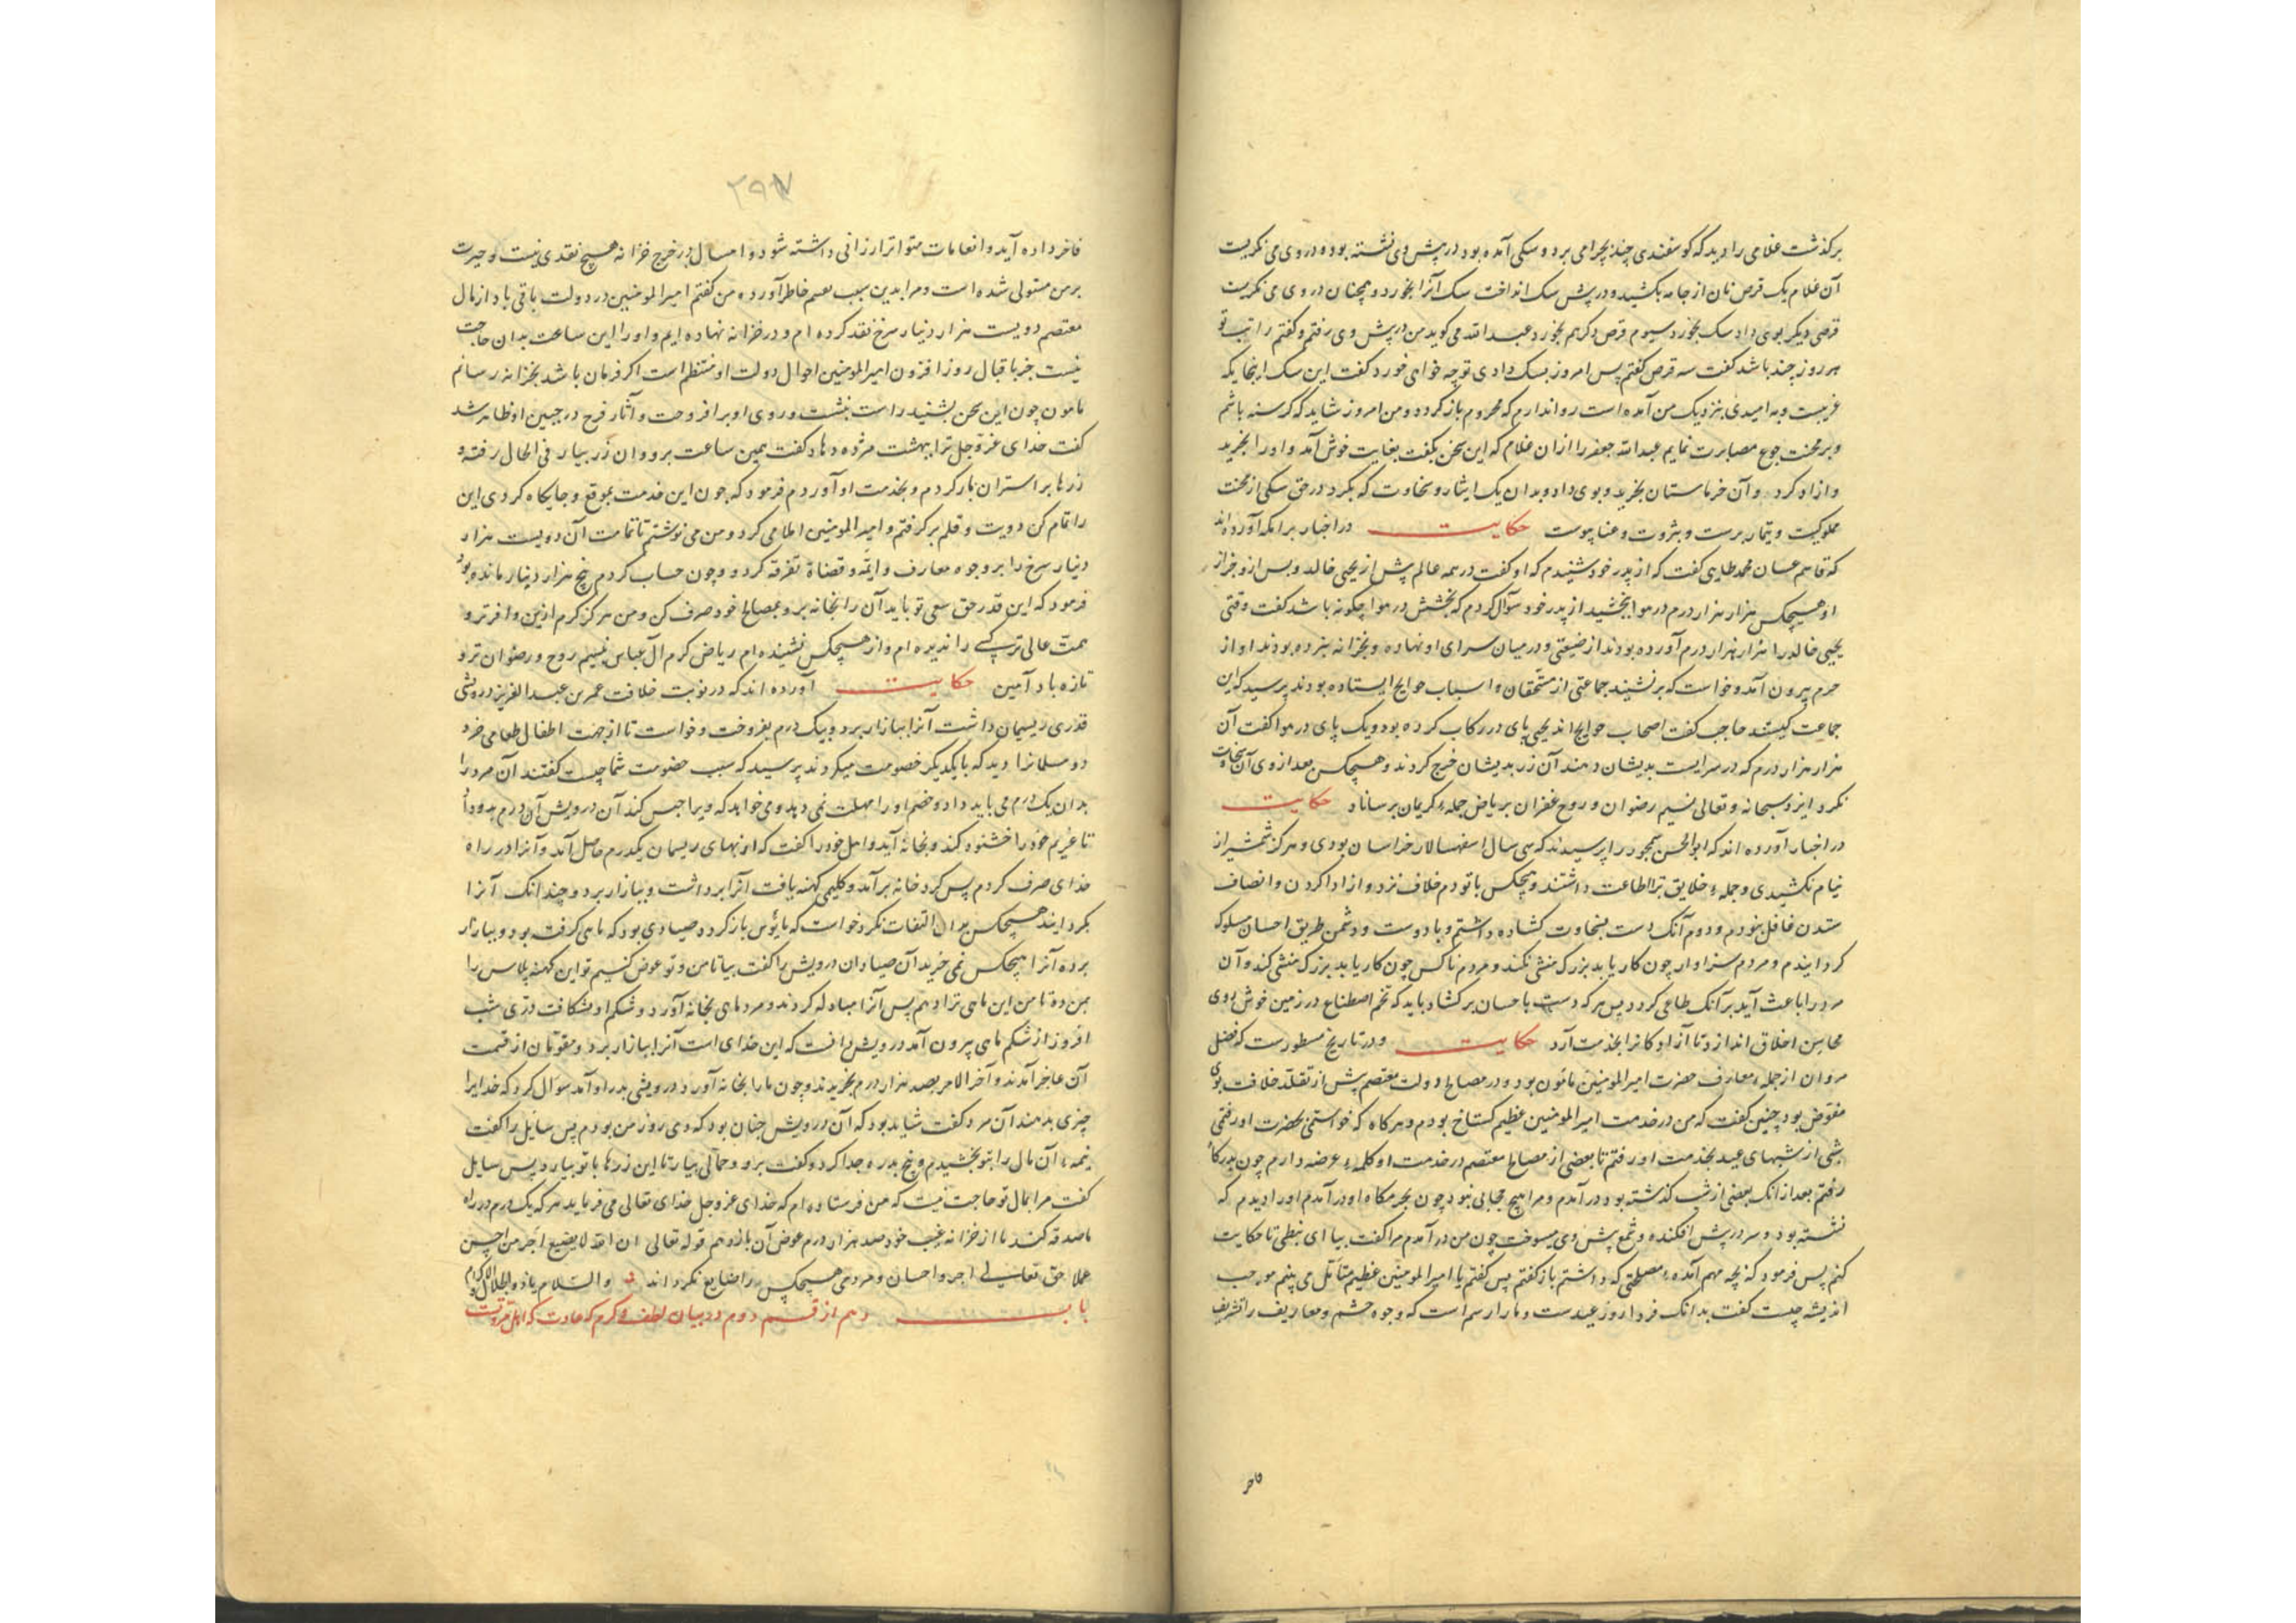 برکذشت غلامی را دید که کوسفندی چند بچرا می برد و سکی آمده بود در پیش وی نشسته بود و در وی می نکریست
آن غلام یک قرص نان از جامه بکشید و در پیش سک انداخت سک آنرا بخورد و همچنان در وی می نکریست
قرصی دیکر بوی داد سک بخورد سیوم قرص دکر هم بخورد عبد الله می کوید من در پیش وی رفتم و کفتم راتب تو
هر روز چند باشد کفت سه قرص کفتم پس امروز بسک دادی تو چه خواهی خورد کفت این سک از ینجا یکه
غریبست و به امیدی بنزدیک من آمده است روا ندارم که محروم باز کردد و من امروز شاید که کرسنه باشم
و بر محنت جوع مصابرت نمایم عبد الله جعفر را از ان غلام که این سخن بکفت بغایت خوش آمد و او را بخرید
و ازاد کرد و آن خرماستان بخرید و بوی داد و بدان یک ایثار و سخاوت که بکرد در حق سکی از محنت
مملوکیت و تیمار برست و بثروت و غنا پیوست حکایت در اخبار برامکه آورده اند
که قاسم غسان محمد طایی کفت که از پدر خود شنیدم که او کفت در همه عالم پیش از یحیی خالد و پس از و جز از
او هیچکس هزار هزار درم در هوا نبخشید از پدر خود سؤال کردم که بخشش در هوا چکونه باشد کفت وقتی
یحیی خالد را هزار هزار درم آورده بودند از ضیعتی و در میان سرای او نهاده و بخزانه نبرده بودند او از
حرم بیرون آمد و خواست که بر نشیند جماعتی از مستحقان و اسباب حوایج ایستاده بودند پرسید که این
جماعت کیستند حاجب کفت اصحاب حوایج اند یحیی پای در رکاب کرده بود و یک پای در هوا کفت آن
هزار هزار درم که در سراست بدیشان دهند آن زر بدیشان خرج کردند و هیچکس بعد از وی آن سخاوت
نکرد ایزد سبحانه و تعالی نسیم رضوان و روح غفران بریاض جمله کریمان برساناد حکایت
در اخبار آورده اند که ابو الحسن سمجور را پرسیدند که سی سال اسفهسالار خراسان بودی و هرکز شمشیر از
نیام نکشیدی و جمله خلایق ترا اطاعت داشتند و هیچکس با تو دم خلاف نزد و از ادا کردن و انصاف
ستدن غافل نبودم و دوم آنک دست بسخاوت کشاده داشتم و با دوست و دشمن طریق احسان مسلوک
کردانیدم و مردم سزاوار چون کار یابد بزرک منشی نکند و مردم ناکس چون کار یابد بزرک منشی کند و آن
مرد را باعث آید بر آنک طاعی کردد پس هر که دست باحسان برکشاد باید که تخم اصطناع در زمین خوش بوی
محاسن اخلاق اندازد تا آزادکانرا بخدمت آرد حکایت و در تاریخ مسطورست که فضل
مروان از جمله معارف حضرت امیر المومنین مامون بود و در مصالح دولت معتصم پیش از تقلد خلافت بوی
مفوض بود چنین کفت که من در خدمت امیر المومنین عظیم کستاخ بودم و هرکاه که خواستمی بحضرت او رفتمی
شبی از شبهای عید بخدمت او رفتم تا بعضی از مصالح معتصم در خدمت او کلمه عرضه دارم چون بدرکاه
رفتم بعد از انک بعضی از شب کذشته بود در آمدم و مرا هیچ حجابی نبود چون بحرمکاه او در آمدم او را دیدم که
نشسته بود و سر در پیش افکنده و شمع پیش وی میسوخت چون من در آمدم مرا کفت بیا ای نبطی تا حکایت
کنم پس فرمود که بچه مهم آمده مصلحتی که داشتم باز کفتم پس کفتم یا امیر المومنین عظیم متامل می بینم موجب
اندیشه چیست کفت بدانک فردا روز عیدست و ما را رسم است که وجوه حشم و معاریف را تشریف
فاخر
۲۹۷
فاخر داده آید و انعامات متواتر ارزانی داشته شود و امسال در خرج خزانه هیچ نقدی نیست و حیرت
بر من مستولی شده است و مرا بدین سبب خاطر آورده من کفتم امیر المومنین در دولت باقی باد از مال
معتصم دویست هزار دینار سرخ نقد کرده ام و در خزانه نهاده ایم و او را این ساعت بدان حاجت
نیست جز باقبال روز افزون امیر المومنین احوال دولت او منتظم است اکر فرمان باشد بخزانه رسانم
مامون چون این سخن بشنید راست بنشست و روی او بر افروخت و آثار فرح در جبین او ظاهر شد
کفت خدای عز و جل ترا ببهشت مژده دهاد کفت همین ساعت برو و ان زر بیار فی الحال رفتم و
زرها بر استران بار کردم و بخدمت او آوردم فرمود که چون این خدمت بموقع و جایکاه کردی این
را تمام کن دویت و قلم بر کرفتم و امیر المومنین املا می کرد و من می نوشتم تا تمامت آن دویست هزار
دینار سرخ را بر وجوه معارف و ایمه و قضاة تفرقه کرد و چون حساب کردم پنج هزار دینار مانده بود
فرمود که این قدر حق سعی تو باید آن را بخانه بر و بمصالح خود صرف کن و من هرکز کرم ازین وافرتر و
همت عالی تر کسی را ندیده ام و از هیچکس نشنیده ام ریاض کرم آل عباس بنسیم روح و رضوان تر و
تازه باد آمین حکایت آورده اند که در نوبت خلافت عمر بن عبد العزیز درویشی
قدری ریسمان داشت آنرا ببازار برد و بیک درم بفروخت و خواست تا از جهت اطفال طعامی خرد
دو مسلمانرا دید که با یکدیکر خصومت میکردند پرسید که سبب خصومت شما چیست کفتند آن مرد را
بدان یک درم می باید داد و خصم او را مهلت نمی دهد و می خواهد که ویرا حبس کند آن درویش آن درم بدو داد
تا غریم خود را خشنود کند و بخانه آید و اهل خود را کفت که از بهای ریسمان یکدرم حاصل آمد و آنرا در راه
خدای صرف کردم پس کرد خانه بر آمد و کلیمی کهنه یافت آنرا برداشت و ببازار برد و چندانک آنرا
بکردانید هیچکس بدان التفات نکرد خواست که مایوس باز کردد صیادی بود که ماهی کرفته بود و ببازار
برده آنرا هیچکس نمی خرید آن صیاد ان درویش را کفت بیا تا من و تو عوض کنیم تو این کهنه پلاس را
بمن ده تا من این ماهی ترا دهم پس آنرا مبادله کردند و مرد ماهی بخانه آورد و شکم او بشکافت دری شب
افروز از شکم ماهی بیرون آمد درویش دانست که این خدای است آنرا ببازار برد و مقومان از قیمت
آن عاجز آمدند و آخر الامر بصد هزار درم بخریدند و چون مال را بخانه آورد درویشی بدر او آمد سوال کرد که خدایرا
چیزی بدهند آن مرد کفت شاید بود که آن درویش چنان بود که دی روز من بودم پس سایل را کفت
نیمه آن مال را بتو بخشیدم و پنج بدره جدا کرد و کفت برو و حمالی بیار تا این زرها با تو بیارد پس سایل
کفت مرا بمال تو حاجت نیست که من فرستاده ام که خدای عز و جل خدای تعالی می فرماید هر که یک درم در راه
ما صدقه کند ما از خزانه غیب خود صد هزار درم عوض آن باز دهم قوله تعالی ان الله لا یضیع اجر من احسن
عملا حق تعالی اجر و احسان و مردمی هیچکس را ضایع نکرداند و السلام
باب دهم از قسم دوم در بیان لطف و کرم که عادت که اهل مروتست